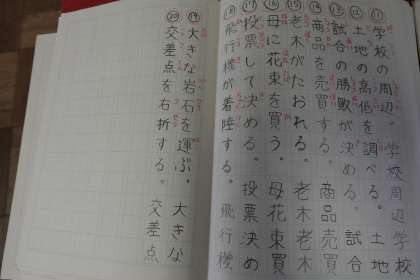 ⑪学校の周辺 学校周辺学校
⑫土地の高低を調べる。土地
⑬試合の勝敗が決める。試合
⑭商品を売買する。商品売買
⑮老木がたおれる。老木老木
⑯母に花束を買う。母花束買
⑰投票して決める。投票決め
⑱飛行機が着陸する。飛行機
⑲大きな岩石を運ぶ。大きな
⑳交差点を右折する。交差点